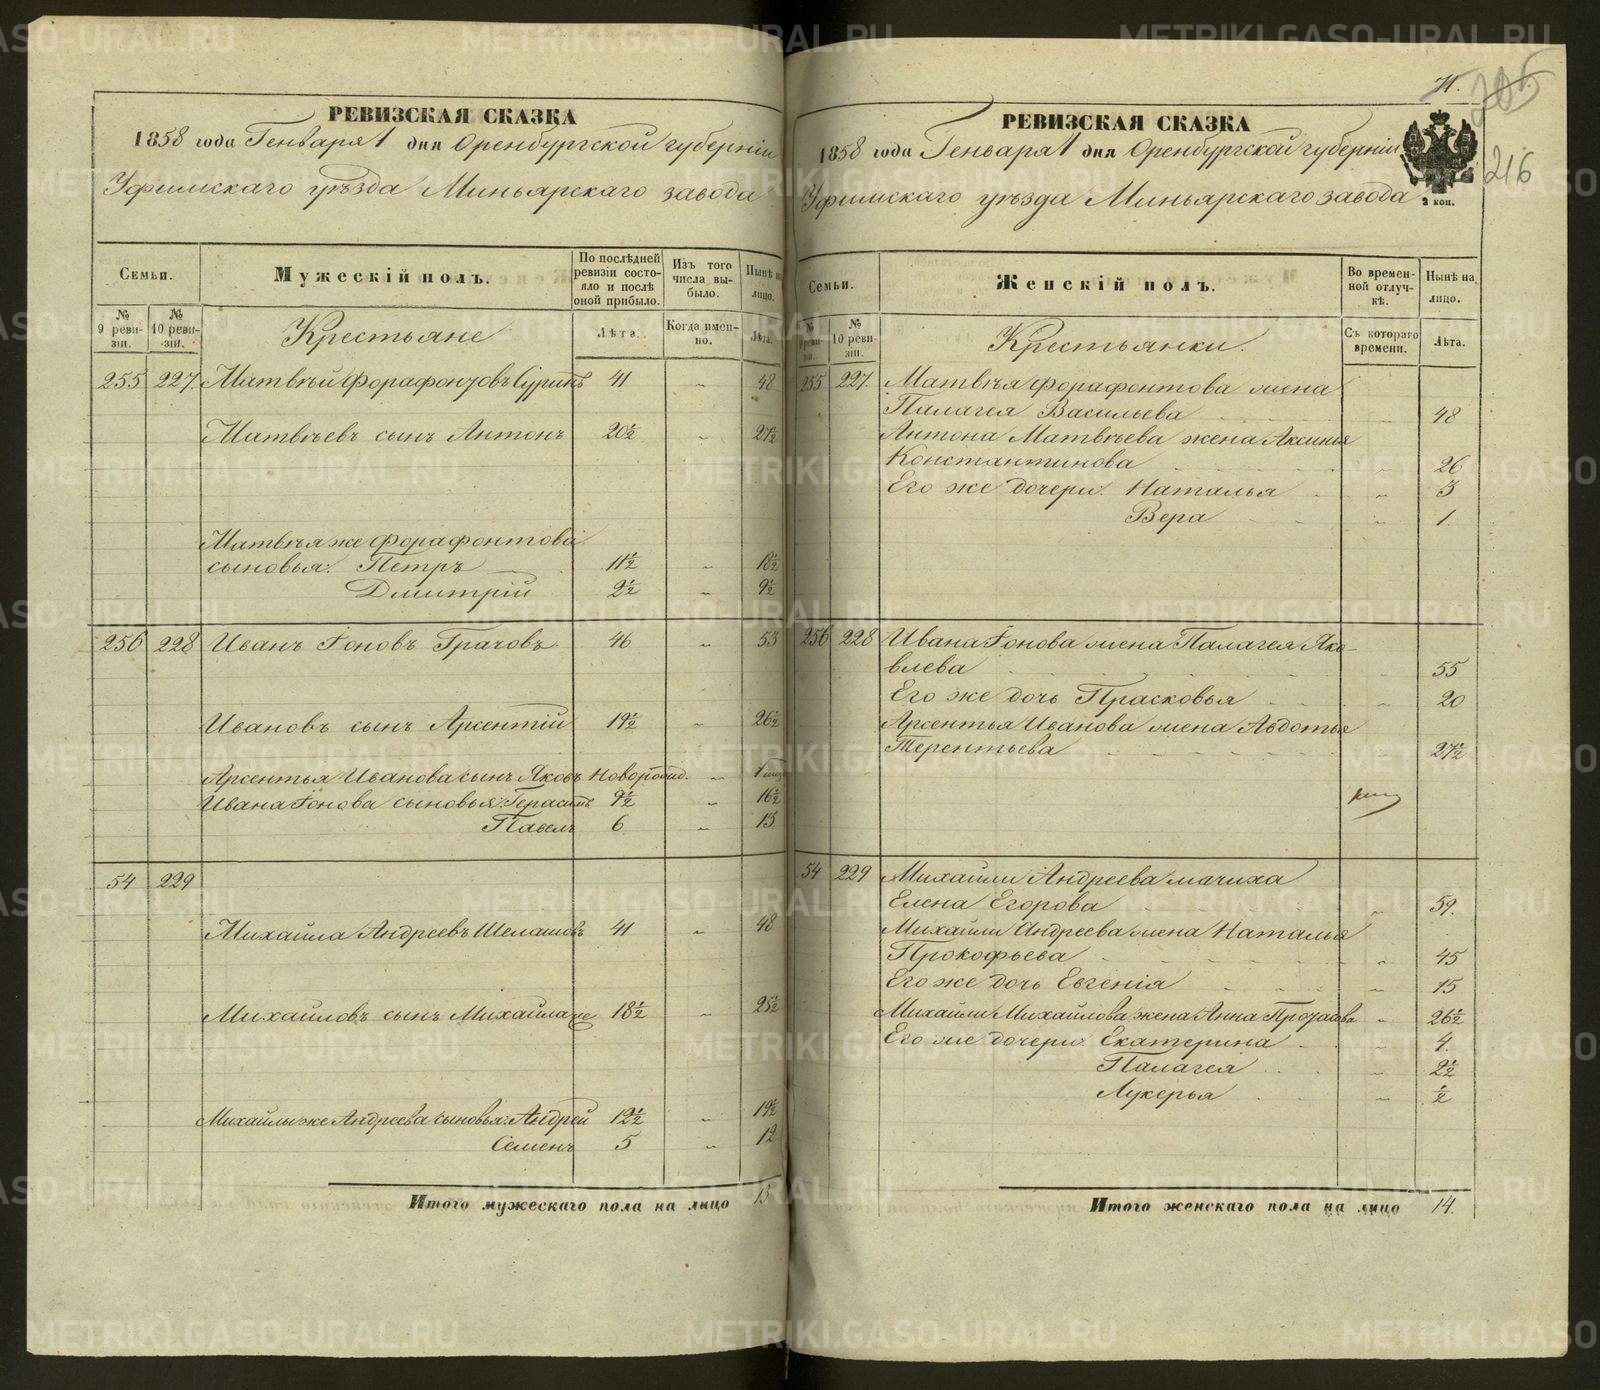 РЕВИЗСКАЯ СКАЗКА
1858 года Генваря 1 дня Оренбургской губерніи
Уфимскаго уѣзда Миньярскаго завода
Семьи.
Мужескій полъ.
По послѣдней ревизіи состояло и послѣ оной прибыло.
Изъ того числа выбыло.
Нынѣ на лицо.
№ 9 ревизіи.
№ 10 ревизіи.
Крестьяне
Лѣта.
Когда именно.
Лѣта.
255 227. Матвѣй Форафонтовъ Суринъ 41 „ 48
Матвѣевъ сынъ Антонъ 20½ „ 27½
Матвѣя же Форафонтова
сыновья: Петръ 11½ „ 18½
Дмитрій 2½ „ 9½
256 228 Иванъ Іоновъ Грачовъ 46 „ 53
Ивановъ сынъ Арсентій 19½ „ 26½
Арсентья Иванова сынъ Яковъ Новорожд. „
Ивана Іонова сыновья: Герасимъ 9½ „ 16½
Павелъ 6 „ 13
54 229
Михайла Андреевъ Шелашовъ 41 „ 48
Михайловъ сынъ Михайла же 18½ „ 25½
Михайлы же Андреева сыновья: Андрей 12½ „ 19½
Семенъ 5 „ 12
Итого мужескаго пола на лицо 13
71.
205
216
РЕВИЗСКАЯ СКАЗКА
1858 года Генваря 1 дня Оренбургской губерніи
Уфимскаго уѣзда Миньярскаго завода
2 коп.
Семьи.
Женскій полъ.
Во временной отлучкѣ.
Нынѣ на лицо.
№ 9 ревизіи.
№ 10 ревизіи.
Крестьянки.
Съ котораго времени.
Лѣта.
255 227. Матвѣя Форафонтова жена
Палагея Васильева 48
Антона Матвѣева жена Аксинья
Константинова „ 26
Его же дочери: Наталья „ 3
Вера „ 1
256 228 Ивана Іонова жена Палагея Яко-
влева 55
Его же дочь Прасковья „ 20
Арсентья Иванова жена Авдотья
Терентьева „ 27½
54 229 Михайли Андреева мачиха
Елена Егорова „ 59.
Михайли Андреева жена Наталья
Прокофьева „ 45
Его же дочь Евгенія „ 15
Михайли Михайлова жена Анна „ 26½
Его же дочери: Екатерина „ 4.
Палагея „ 2½
Лукерья „ ½
Итого женскаго пола на лицо 14.
METRIKI.GASO-URAL.RU